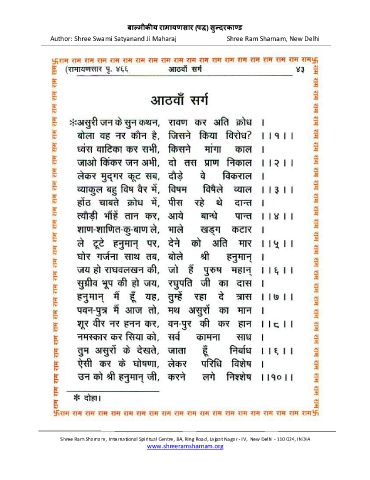 बाल्मीकीय रामायणसार (पद्य) सुन्दरकाण्ड
Author: Shree Swami Satyanand Ji Maharaj Shree Ram Sharnam, New Delhi
卐राम राम राम राम राम राम राम राम राम राम राम राम राम राम राम राम राम राम राम राम卐
(रामायणसार पृ. ४६६ आठवाँ सर्ग ४३
आठवाँ सर्ग
असुरी जन के सुन कथन, रावण कर अति क्रोध ।
बोला वह नर कौन है, जिसने किया विरोध? ।।१।।
ध्वंस वाटिका कर सभी, किसने मांगा काल ।
जाओ किंकर जन अभी, दो तस प्राण निकाल ।।२।।
लेकर मुद्गर कूट सब, दौड़े वे विकराल ।
व्याकुल बहु विष वैर में, विषम विषैले व्याल ।।३।।
होंठ चाबते क्रोध में, पीस रहे थे दान्त ।
त्यौड़ी भौंहें तान कर, आये बान्धे पान्त ।।४।।
शाण-शाणित-कु-बाण ले, भाले खड्ग कटार ।
ले टूटे हनुमान् पर, देने को अति मार ।।५।।
घोर गर्जना साथ तब, बोले श्री हनुमान् ।
जय हो राघवलखन की, जो हैं पुरुष महान् ।।६।।
सुग्रीव भूप की हो जय, रघुपति जी का दास ।
हनुमान् मैं हूँ यह, तुम्हें रहा दे त्रास ।।७।।
पवन-पुत्र मैं आज तो, मथ असुरों का मान ।
शूर वीर नर हनन कर, वन-पुर की कर हान ।।८।।
नमस्कार कर सिया को, सर्व कामना साध ।
तुम असुरों के देखते, जाता हूँ निर्बाध ।।९।।
ऐसी कर के घोषणा, लेकर परिधि विशेष ।
उन को श्री हनुमान् जी, करने लगे निश्शेष ।।१०।।
दोहा।
卐राम राम राम राम राम राम राम राम राम राम राम राम राम राम राम राम राम राम राम राम卐
Shree Ram Sharnam, International Spiritual Centre, 8A, Ring Road, Lajpat Nagar - IV, New Delhi - 110 024, INDIA
www.shreeramsharnam.org